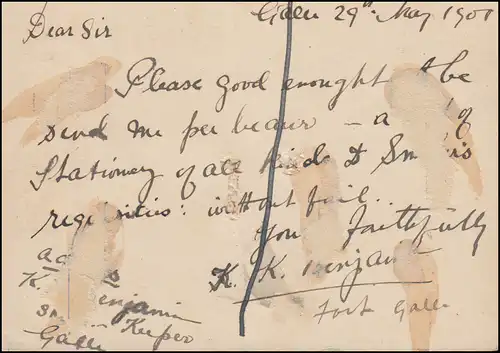 Galle 29th May 1901
Dear Sir
Please good enought be
send me per bearer - a of
Stationery of all kinds & 
requisities: without fail..
You faithfully
K. K. Benjamin
Fort Galle
K. Benjamin
Keeper
Galle